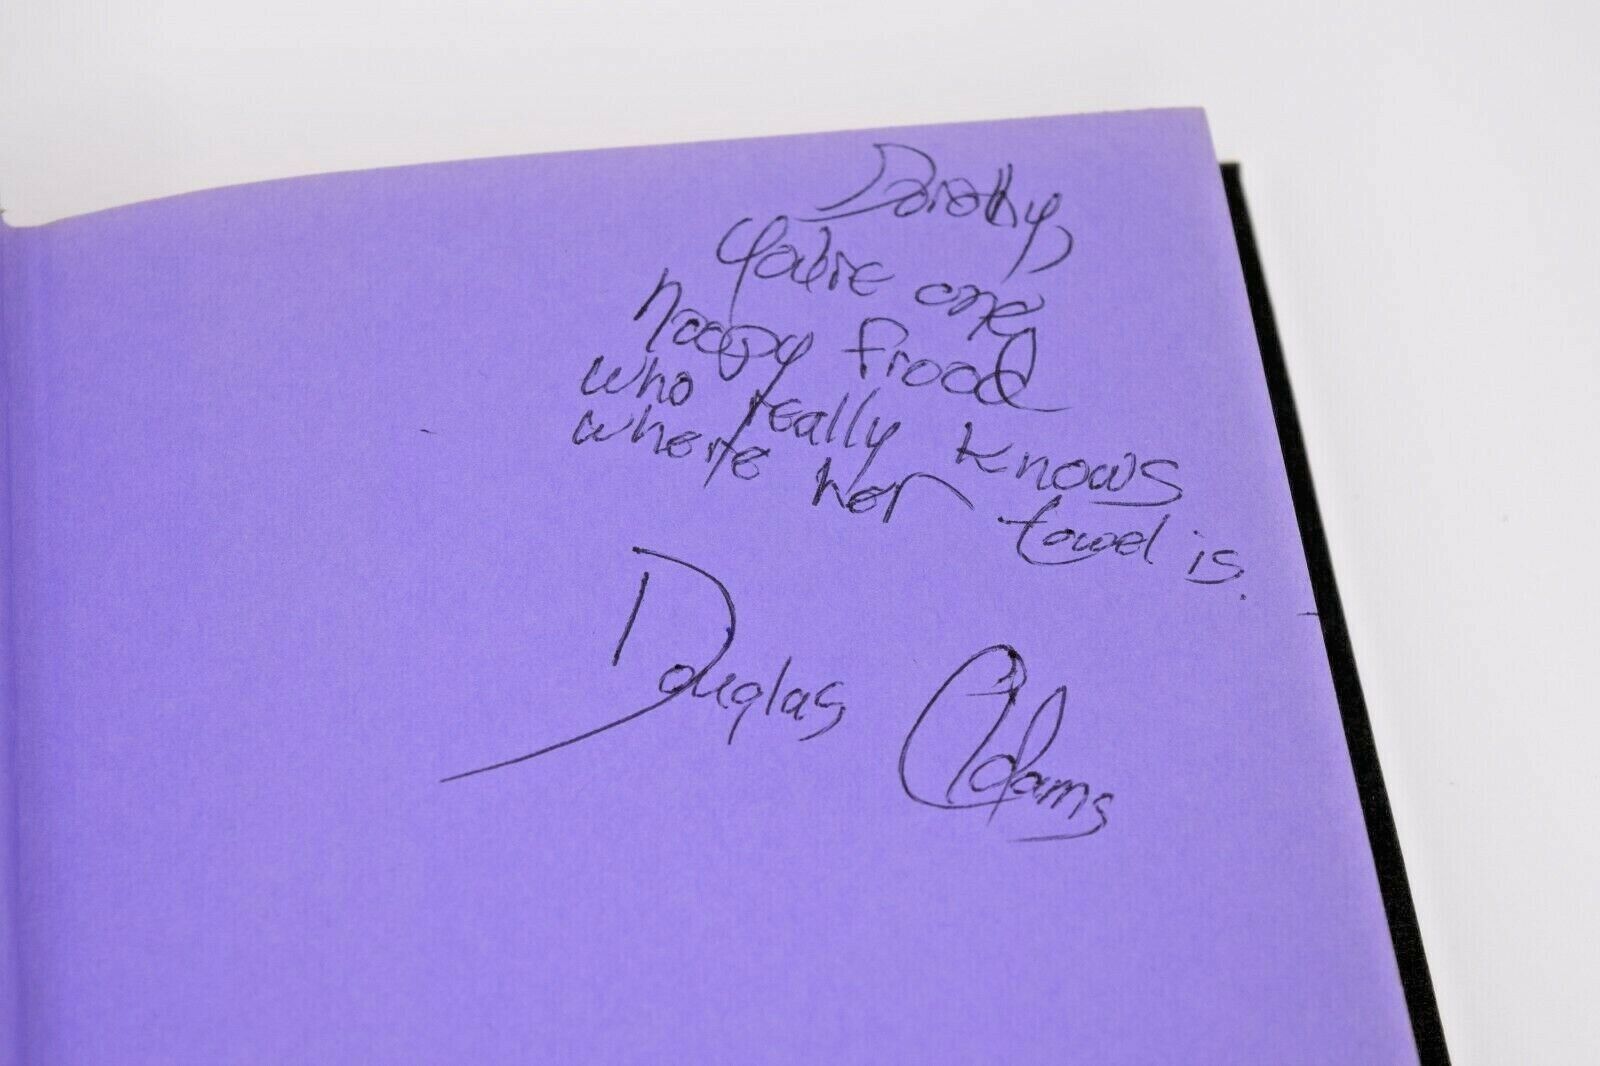 Dorothy,
You're one
hoopy frood
who really knows
where her towel is.
Douglas Adams